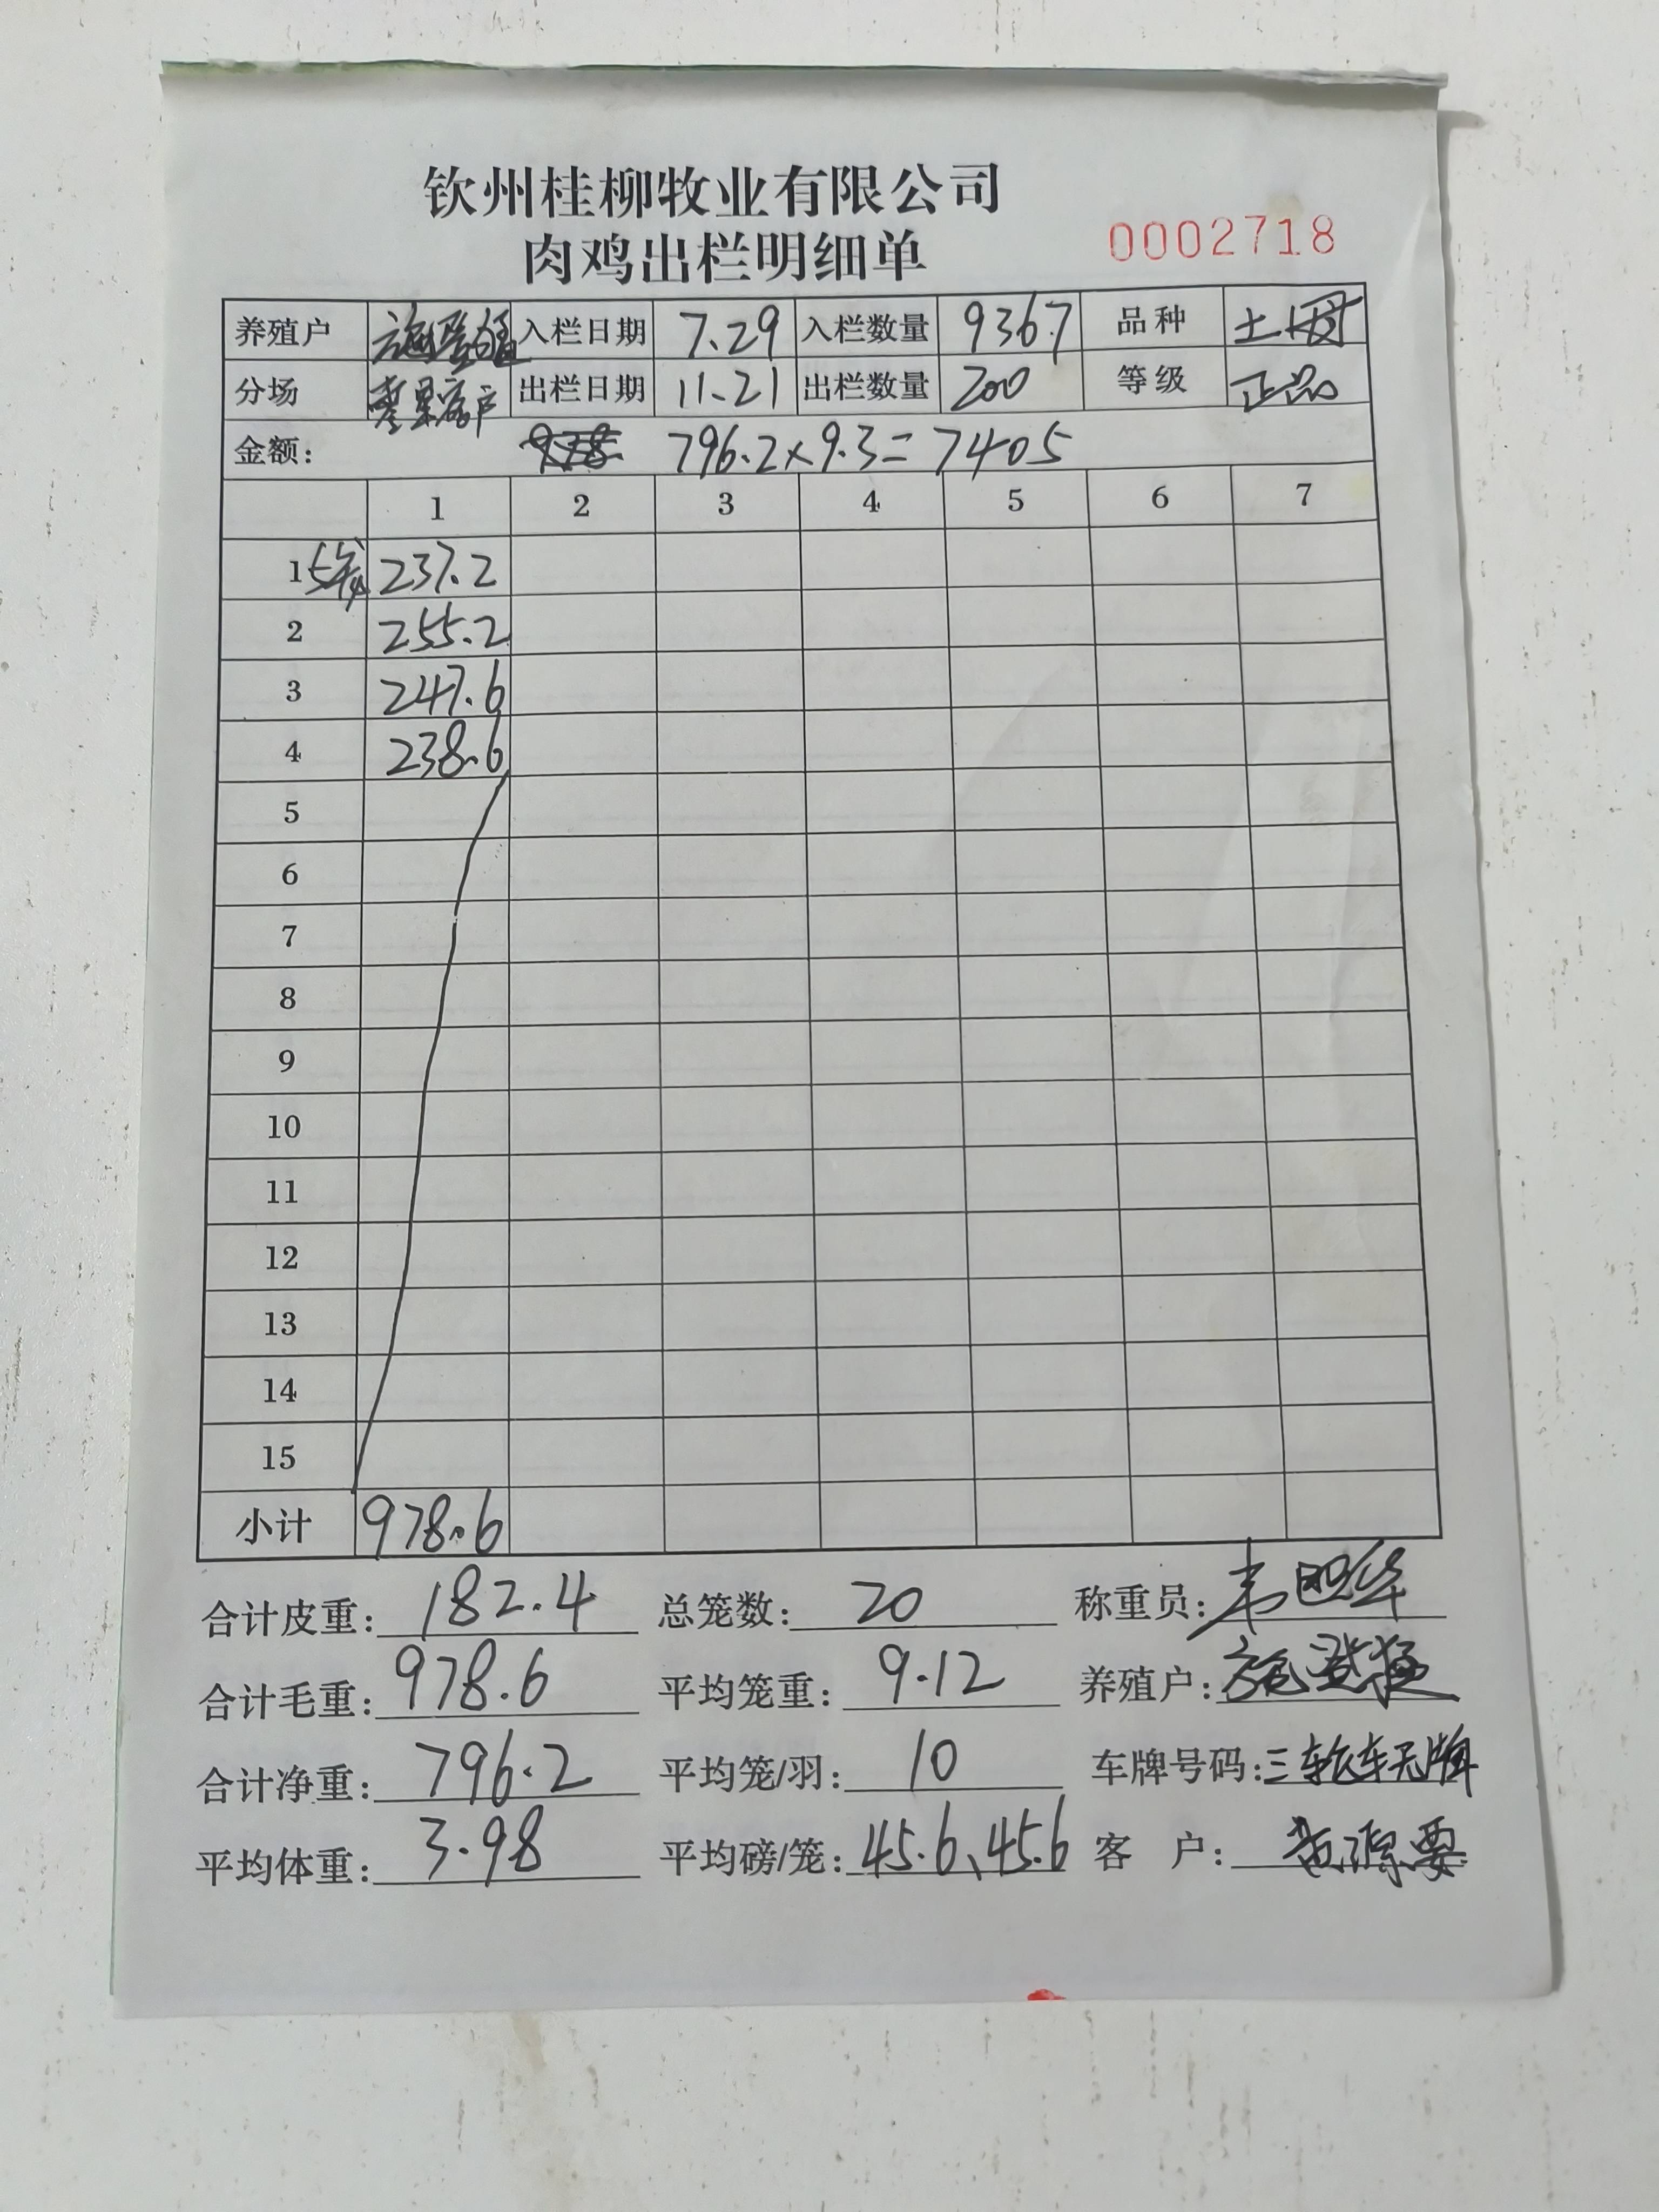 钦州桂柳牧业有限公司
肉鸡出栏明细单 0002718
养殖户 入栏日期 7.29 入栏数量 9367 品种 土
分场 客户 出栏日期 11.21 出栏数量 200 等级 正品
金额: 796.2×9.3=7405
1 2 3 4 5 6 7
1 237.2
2 255.2
3 247.6
4 238.6
5
6
7
8
9
10
11
12
13
14
15
小计 978.6
合计皮重: 182.4 总笼数: 20 称重员:
合计毛重: 978.6 平均笼重: 9.12 养殖户: 施
合计净重: 796.2 平均笼/羽: 10 车牌号码: 三轮车无牌
平均体重: 3.98 平均磅/笼: 45.6、45.6 客 户: